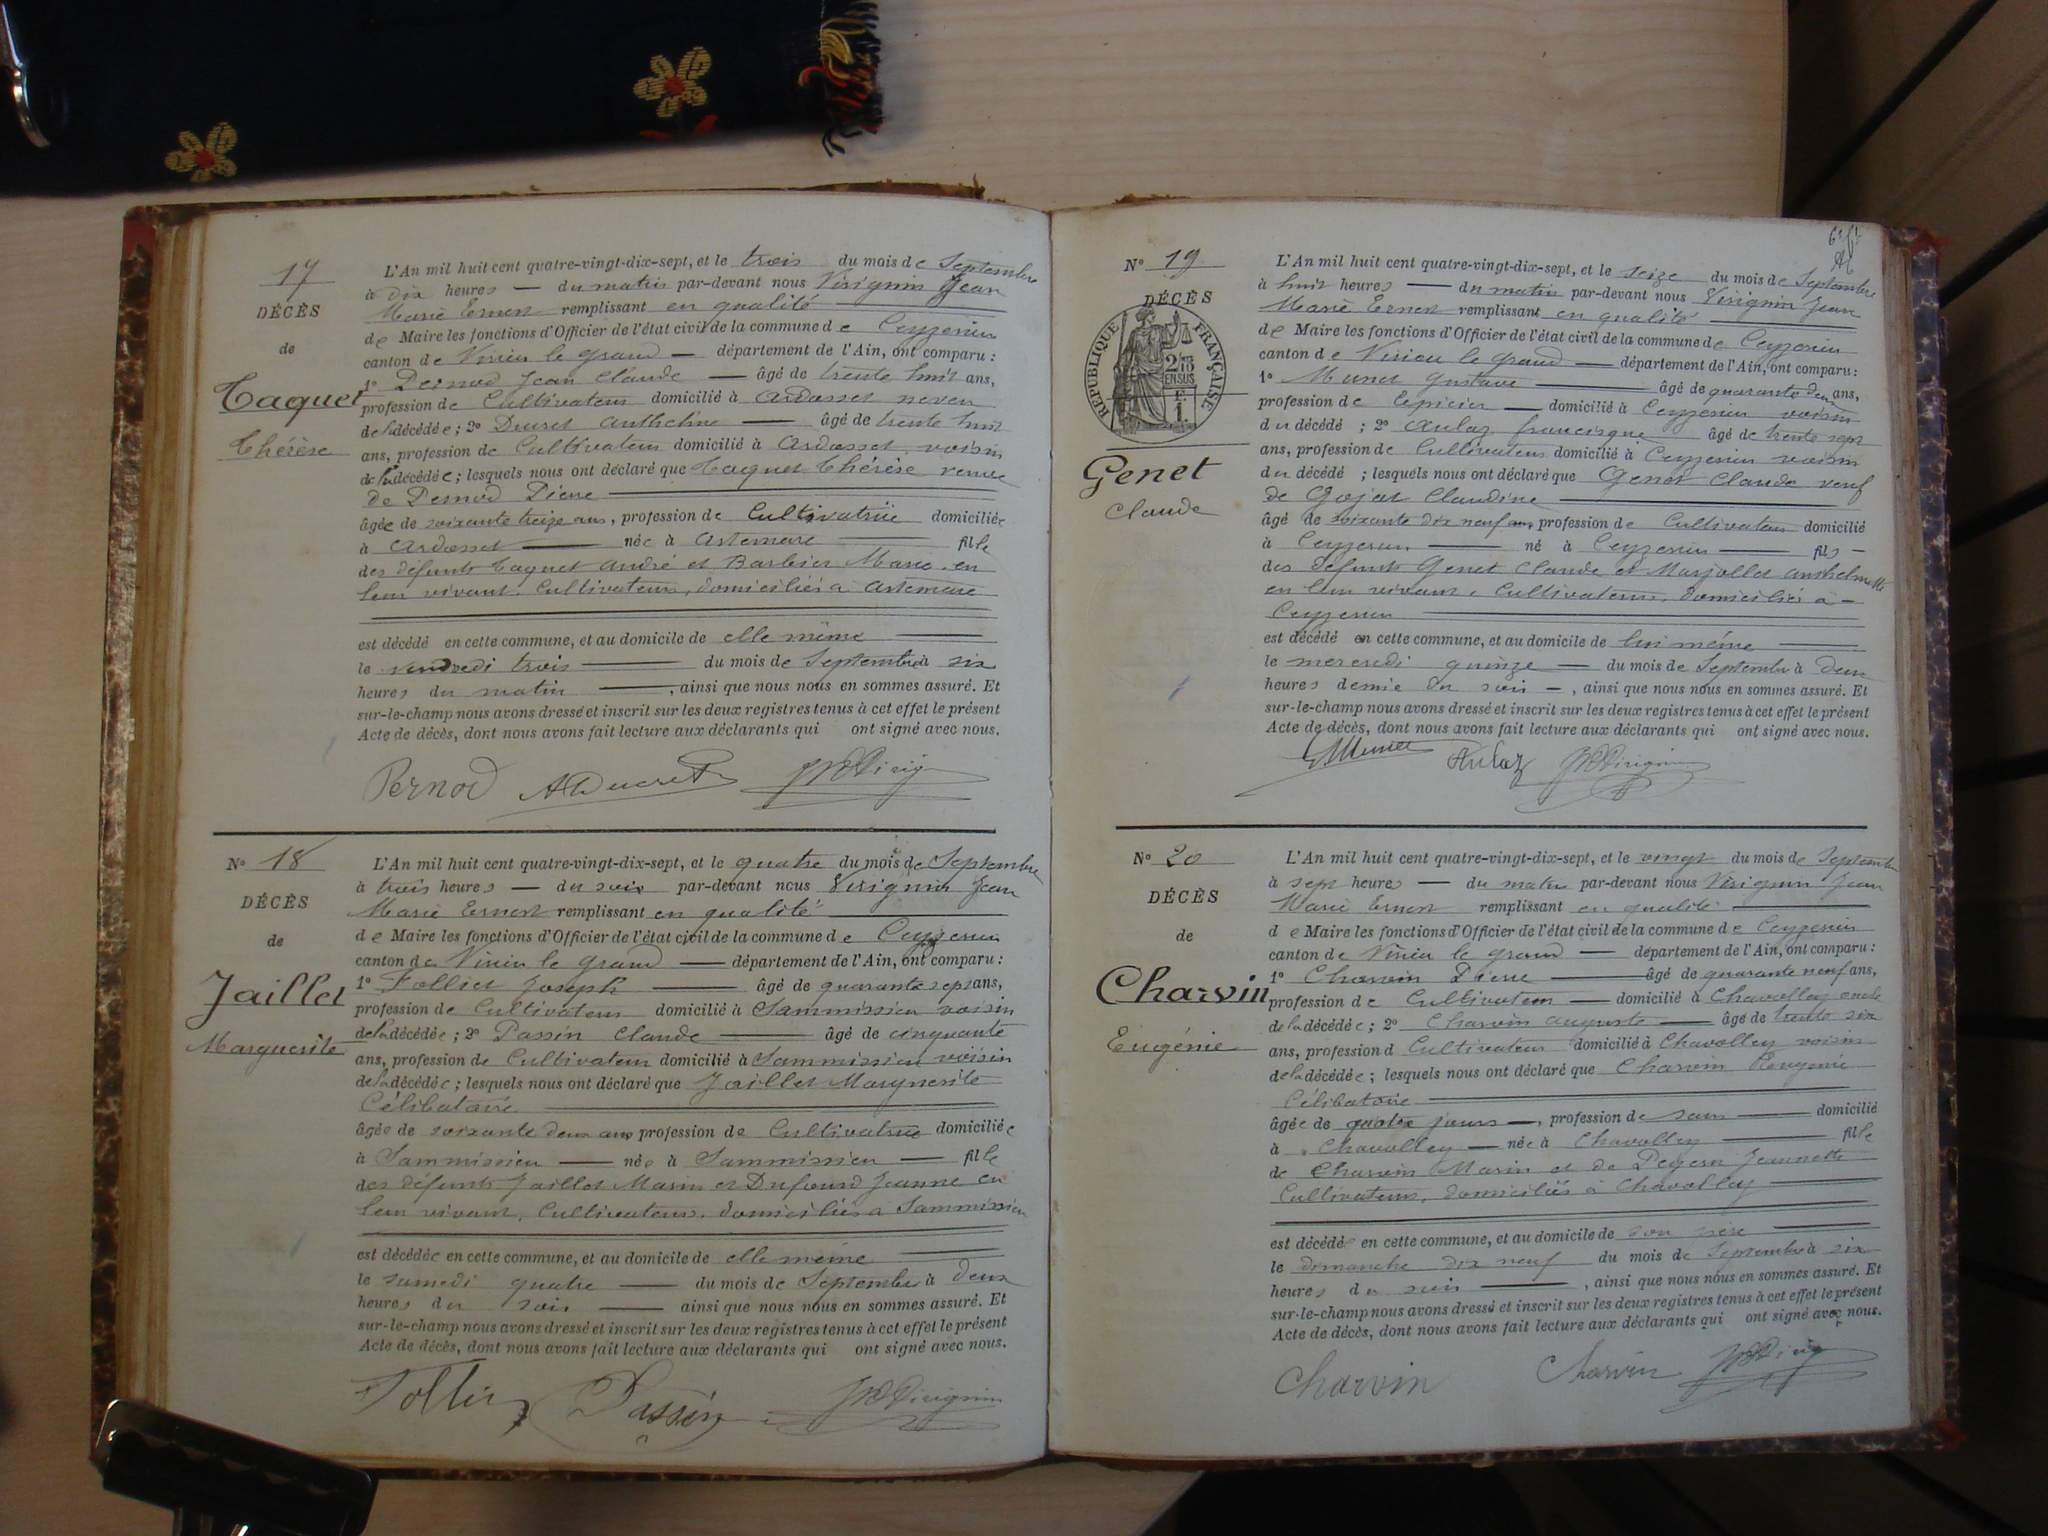 17
DÉCÈS
de
Taquet
Thérèse
L'An mil huit cent quatre-vingt-dix-sept, et le trois du mois de Septembre
à dix heures — du matin par-devant nous Virignin Jean
Marie Ernest remplissant en qualité
de Maire les fonctions d'Officier de l'état civil de la commune de Ceyzerieu
canton de Virieu le grand — département de l'Ain, ont comparu :
1° Pernod Jean Claude — âgé de trente huit ans,
profession de Cultivateur domicilié à Ardosset neveu
de la décédée ; 2° Ducret Anthelme — âgé de trente huit
ans, profession de Cultivateur domicilié à Ardosset voisin
de la décédée ; lesquels nous ont déclaré que Taquet Thérèse veuve
de Pernod Pierre
âgée de soixante treize ans, profession de Cultivatrice domiciliée
à Ardosset — née à Artemare fille
des défunts Taquet André et Barbier Marie en
leur vivant Cultivateurs, domiciliés à Artemare
est décédé en cette commune, et au domicile de elle même
le vendredi trois — du mois de Septembre à six
heures du matin —, ainsi que nous nous en sommes assuré. Et
sur-le-champ nous avons dressé et inscrit sur les deux registres tenus à cet effet le présent
Acte de décès, dont nous avons fait lecture aux déclarants qui ont signé avec nous.
Pernod ADucret JMVirignin
N° 18
DÉCÈS
de
Jaillet
Marguerite
L'An mil huit cent quatre-vingt-dix-sept, et le quatre du mois de Septembre
à trois heures — du soir par-devant nous Virignin Jean
Marie Ernest remplissant en qualité
de Maire les fonctions d'Officier de l'état civil de la commune de Ceyzerieu
canton de Virieu le grand — département de l'Ain, ont comparu :
1° Folliet Joseph — âgé de quarante sept ans,
profession de Cultivateur domicilié à Sammissieu voisin
de la décédée ; 2° Passin Claude — âgé de cinquante
ans, profession de Cultivateur domicilié à Sammissieu voisin
de la décédée ; lesquels nous ont déclaré que Jaillet Marguerite
Célibataire
âgée de soixante deux ans profession de Cultivatrice domiciliée
à Sammissieu — née à Sammissieu — fille
des défunts Jaillet Marin et Dufourd Jeanne en
leur vivant, Cultivateurs, domiciliés à Sammissieu
est décédée en cette commune, et au domicile de elle même
le samedi quatre — du mois de Septembre à deux
heures du soir — ainsi que nous nous en sommes assuré. Et
sur-le-champ nous avons dressé et inscrit sur les deux registres tenus à cet effet le présent
Acte de décès, dont nous avons fait lecture aux déclarants qui ont signé avec nous.
Folliet Passin JMVirignin
N° 19
DÉCÈS
RÉPUBLIQUE FRANÇAISE
2/10 EN SUS
1F
Genet
Claude
L'An mil huit cent quatre-vingt-dix-sept, et le seize du mois de Septembre
à huit heures — du matin par-devant nous Virignin Jean
Marie Ernest remplissant en qualité
de Maire les fonctions d'Officier de l'état civil de la commune de Ceyzerieu
canton de Virieu le grand — département de l'Ain, ont comparu :
1° Munet Gustave — âgé de quarante deux ans,
profession de Epicier — domicilié à Ceyzerieu voisin
du décédé ; 2° Aulaz francisque âgé de trente sept
ans, profession de Cultivateur domicilié à Ceyzerieu voisin
du décédé ; lesquels nous ont déclaré que Genet Claude veuf
de Gojat Claudine
âgé de soixante dix neuf ans, profession de Cultivateur domicilié
à Ceyzerieu — né à Ceyzerieu — fils —
des défunts Genet Claude et Marjollet Anthelmette
en leur vivant, Cultivateurs, domiciliés à —
Ceyzerieu
est décédé en cette commune, et au domicile de lui même
le mercredi quinze — du mois de Septembre à deux
heures demie du soir —, ainsi que nous nous en sommes assuré. Et
sur-le-champ nous avons dressé et inscrit sur les deux registres tenus à cet effet le présent
Acte de décès, dont nous avons fait lecture aux déclarants qui ont signé avec nous.
GMunet Aulaz JMVirignin
N° 20
DÉCÈS
de
Charvin
Eugénie
L'An mil huit cent quatre-vingt-dix-sept, et le vingt du mois de Septembre
à sept heures — du matin par-devant nous Virignin Jean
Marie Ernest remplissant en qualité
de Maire les fonctions d'Officier de l'état civil de la commune de Ceyzerieu
canton de Virieu le grand — département de l'Ain, ont comparu :
1° Charvin Pierre — âgé de quarante neuf ans,
profession de Cultivateur — domicilié à Chavolley oncle
de la décédée ; 2° Charvin Auguste — âgé de trente six
ans, profession d Cultivateur domicilié à Chavolley voisin
de la décédée ; lesquels nous ont déclaré que Charvin Eugénie
Célibataire
âgée de quatre jours —, profession de sans — domicilié
à Chavolley — née à Chavolley — fille
de Charvin Marin et de Jeannette
Cultivateurs, domiciliés à Chavolley
est décédée en cette commune, et au domicile de son père
le dimanche dix neuf du mois de Septembre à six
heures du soir —, ainsi que nous nous en sommes assuré. Et
sur-le-champ nous avons dressé et inscrit sur les deux registres tenus à cet effet le présent
Acte de décès, dont nous avons fait lecture aux déclarants qui ont signé avec nous.
Charvin Charvin JMVirignin